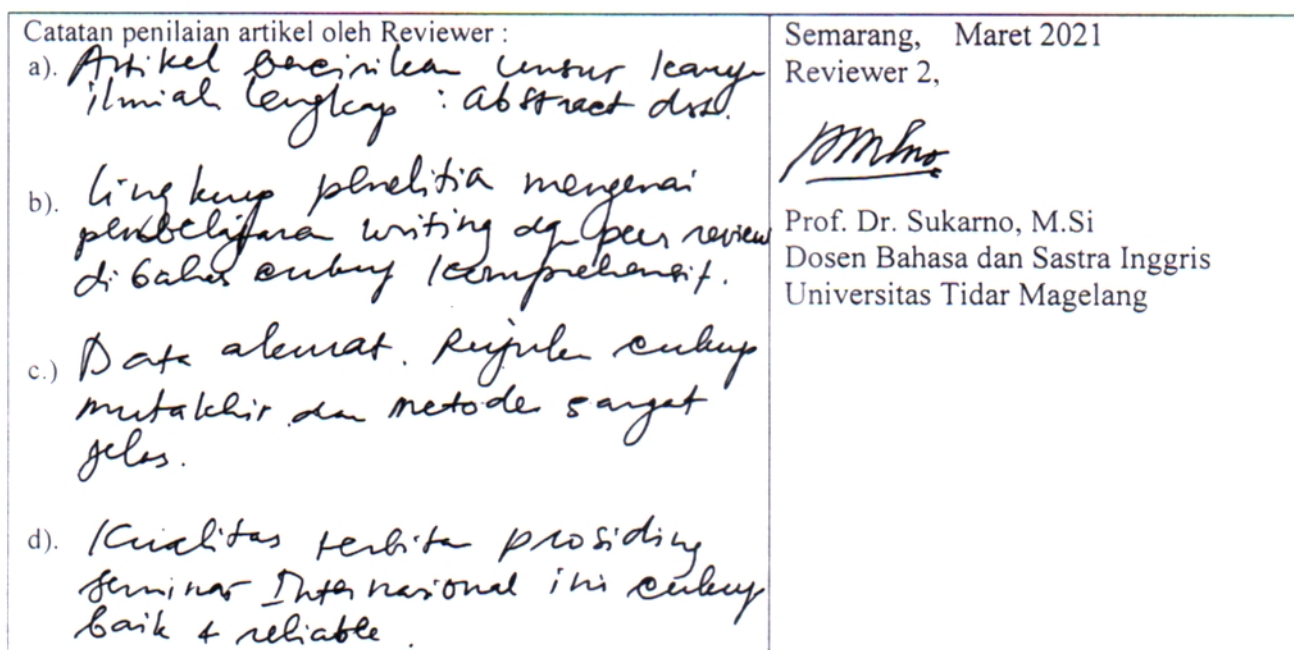 Catatan penilaian artikel oleh Reviewer :
a). Artikel bercirikan unsur karya
ilmiah lengkap : abstract dst.
b). lingkup penelitia mengenai
pembelajaran writing dg peer review
di bahas cukup komprehensif.
c.) Data akurat. Rujukan cukup
mutakhir dan metode sangat
jelas.
d). Kualitas terbitan prosiding
seminar Internasional ini cukup
baik & reliable.
Semarang, Maret 2021
Reviewer 2,
Prof. Dr. Sukarno, M.Si
Dosen Bahasa dan Sastra Inggris
Universitas Tidar Magelang